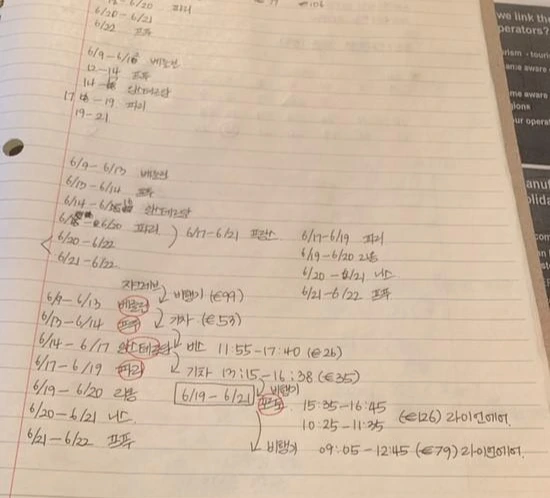 6/20 파리
€106
6/20-6/21
6/22 프푸
6/9-6/ 베를린
12-14 프푸
14- 암스테르담
17 -19 파리
19-21
6/9-6/13 베를린
6/13-6/14 프푸
6/14-6/ 암스테르담
6/20 파리 ) 6/17-6/21 프랑스
6/17-6/19 파리
6/20-6/22
6/19-6/20 리옹
6/21-6/22
6/20-6/21 니스
6/21-6/22 프푸
비행기 (€99)
6/9-6/13 베를린
기차 (€53)
6/13-6/14 프푸
6/14-6/17 암스테르담 버스 11:55-17:40 (€26)
6/17-6/19 파리 기차 13:15-16:38 (€35)
6/19-6/20 리옹 6/19-6/21 비행기
15:35-16:45
6/20-6/21 니스 10:25-11:35 (€126) 라이언에어.
6/21-6/22 프푸 비행기 09:05-12:45 (€79) 라이언에어.
we link th
perators?
ourism - touri
ame aware
me aware
gions
our opera
anuf
olida